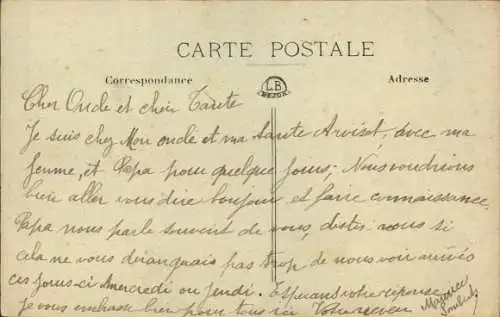 CARTE POSTALE
Correspondance
LB
Adresse
Cher Oncle et chère Tante
Je suis chez Mon oncle et ma tante Arviset, avec ma
femme, et Papa pour quelque jours; Nous voudrions
bien aller vous dire bonjour et faire connaissance
Papa nous parle souvent de vous, dites-nous si
cela ne vous dérangerais pas trop de nous voir
ces jours-ci mercredi ou jeudi. Esperant votre réponse
je vous embrasse bien pour tous Votre neveu Maurice